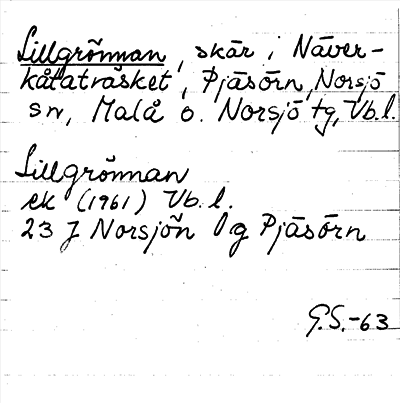 Lillgrönnan, skär i Näver-
kåtaträsket, Pjäsörn, Norsjö
sn, Malå o. Norsjö tg, Vb.l.
Lillgrönnan
ek (1961) Vb.l.
23 J Norsjön 0g Pjäsörn
G.S.-63